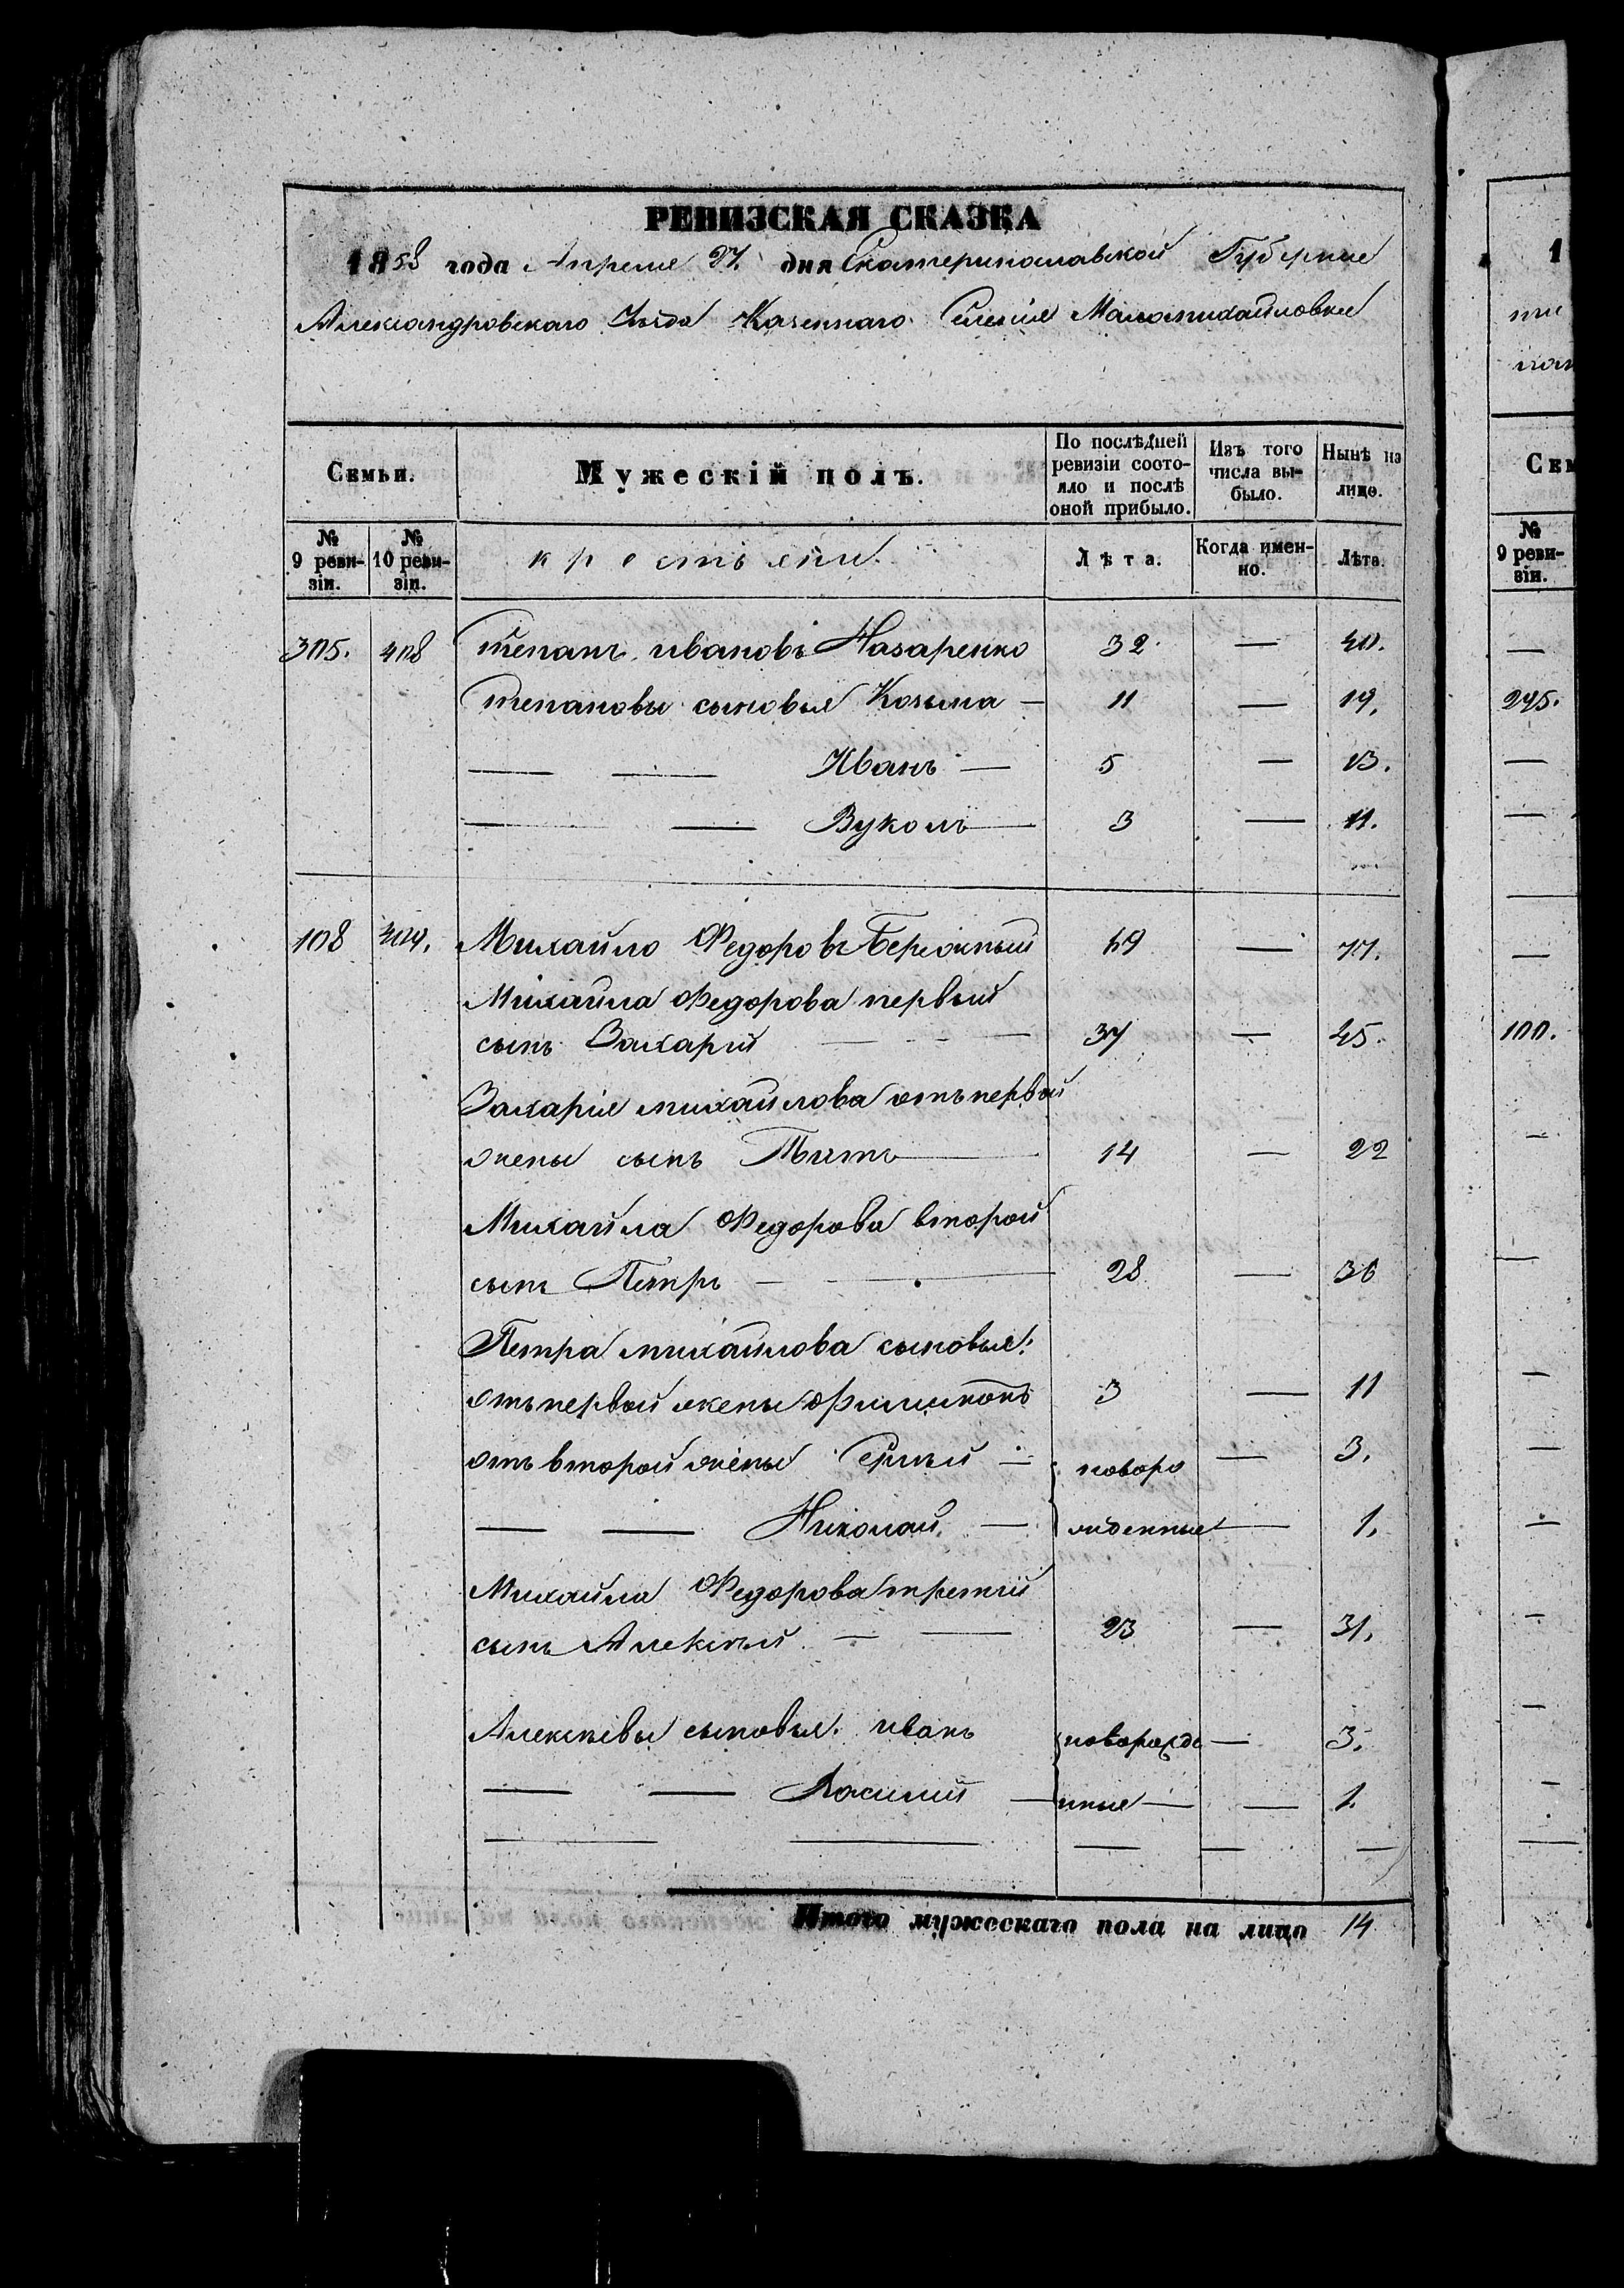 РЕВИЗСКАЯ СКАЗКА
1858 года Апреля 27. дня Екатеринославской Губернии
Александровскаго Уезда Казеннаго Селенія Маломихайловки
Семьи.
Мужескій полъ.
По послѣдней ревизіи состояло и послѣ оной прибыло.
Изъ того числа выбыло.
Нынѣ на лицо.
№ 9 ревизіи.
№ 10 ревизіи.
крестьяни.
Лѣта.
Когда именно.
Лѣта.
305. 408 Степанъ ивановъ Назаренко 32 — 40.
Степановы сыновья Козьма — 11 — 19.
— — Иванъ — 5 — 13.
— — Вуколъ — 3 — 11.
108 409. Михайло Федоровъ Бережный 69 — 77.
Михайла Федорова первый
сынъ Захарій — 37 — 45.
Захарія михайлова отъ первой
жены сынъ Титъ — 14 — 22
Михайла Федорова второй
сынъ Петръ — 28 — 36
Петра михайлова сыновья:
отъ первой жены Филимонъ 3 — 11
отъ второй жены Сергѣй — новоро — 3.
— — Николай — жденные — 1.
Михайла Федорова третій
сынъ Алексѣй — — 23 — 31.
Алексѣевы сыновья: иванъ новорожде — 3.
— — Василий — нные — — 1.
Итого мужескаго пола на лицо 14
1
ти
Сем
№ 9 ревизіи.
—
295.
—
—
—
100.